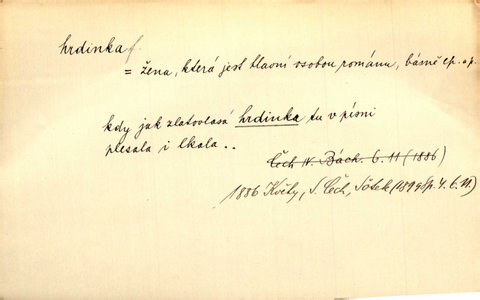 hrdinka f.
= žena, která jest hlavní osobou románu, básně ep. ap.
kdy jak zlatovlasá hrdinka tu v písni
plesala i lkala..
Čech N. Bách. 6. 11 (1886)
1886 Květy, S. Čech,